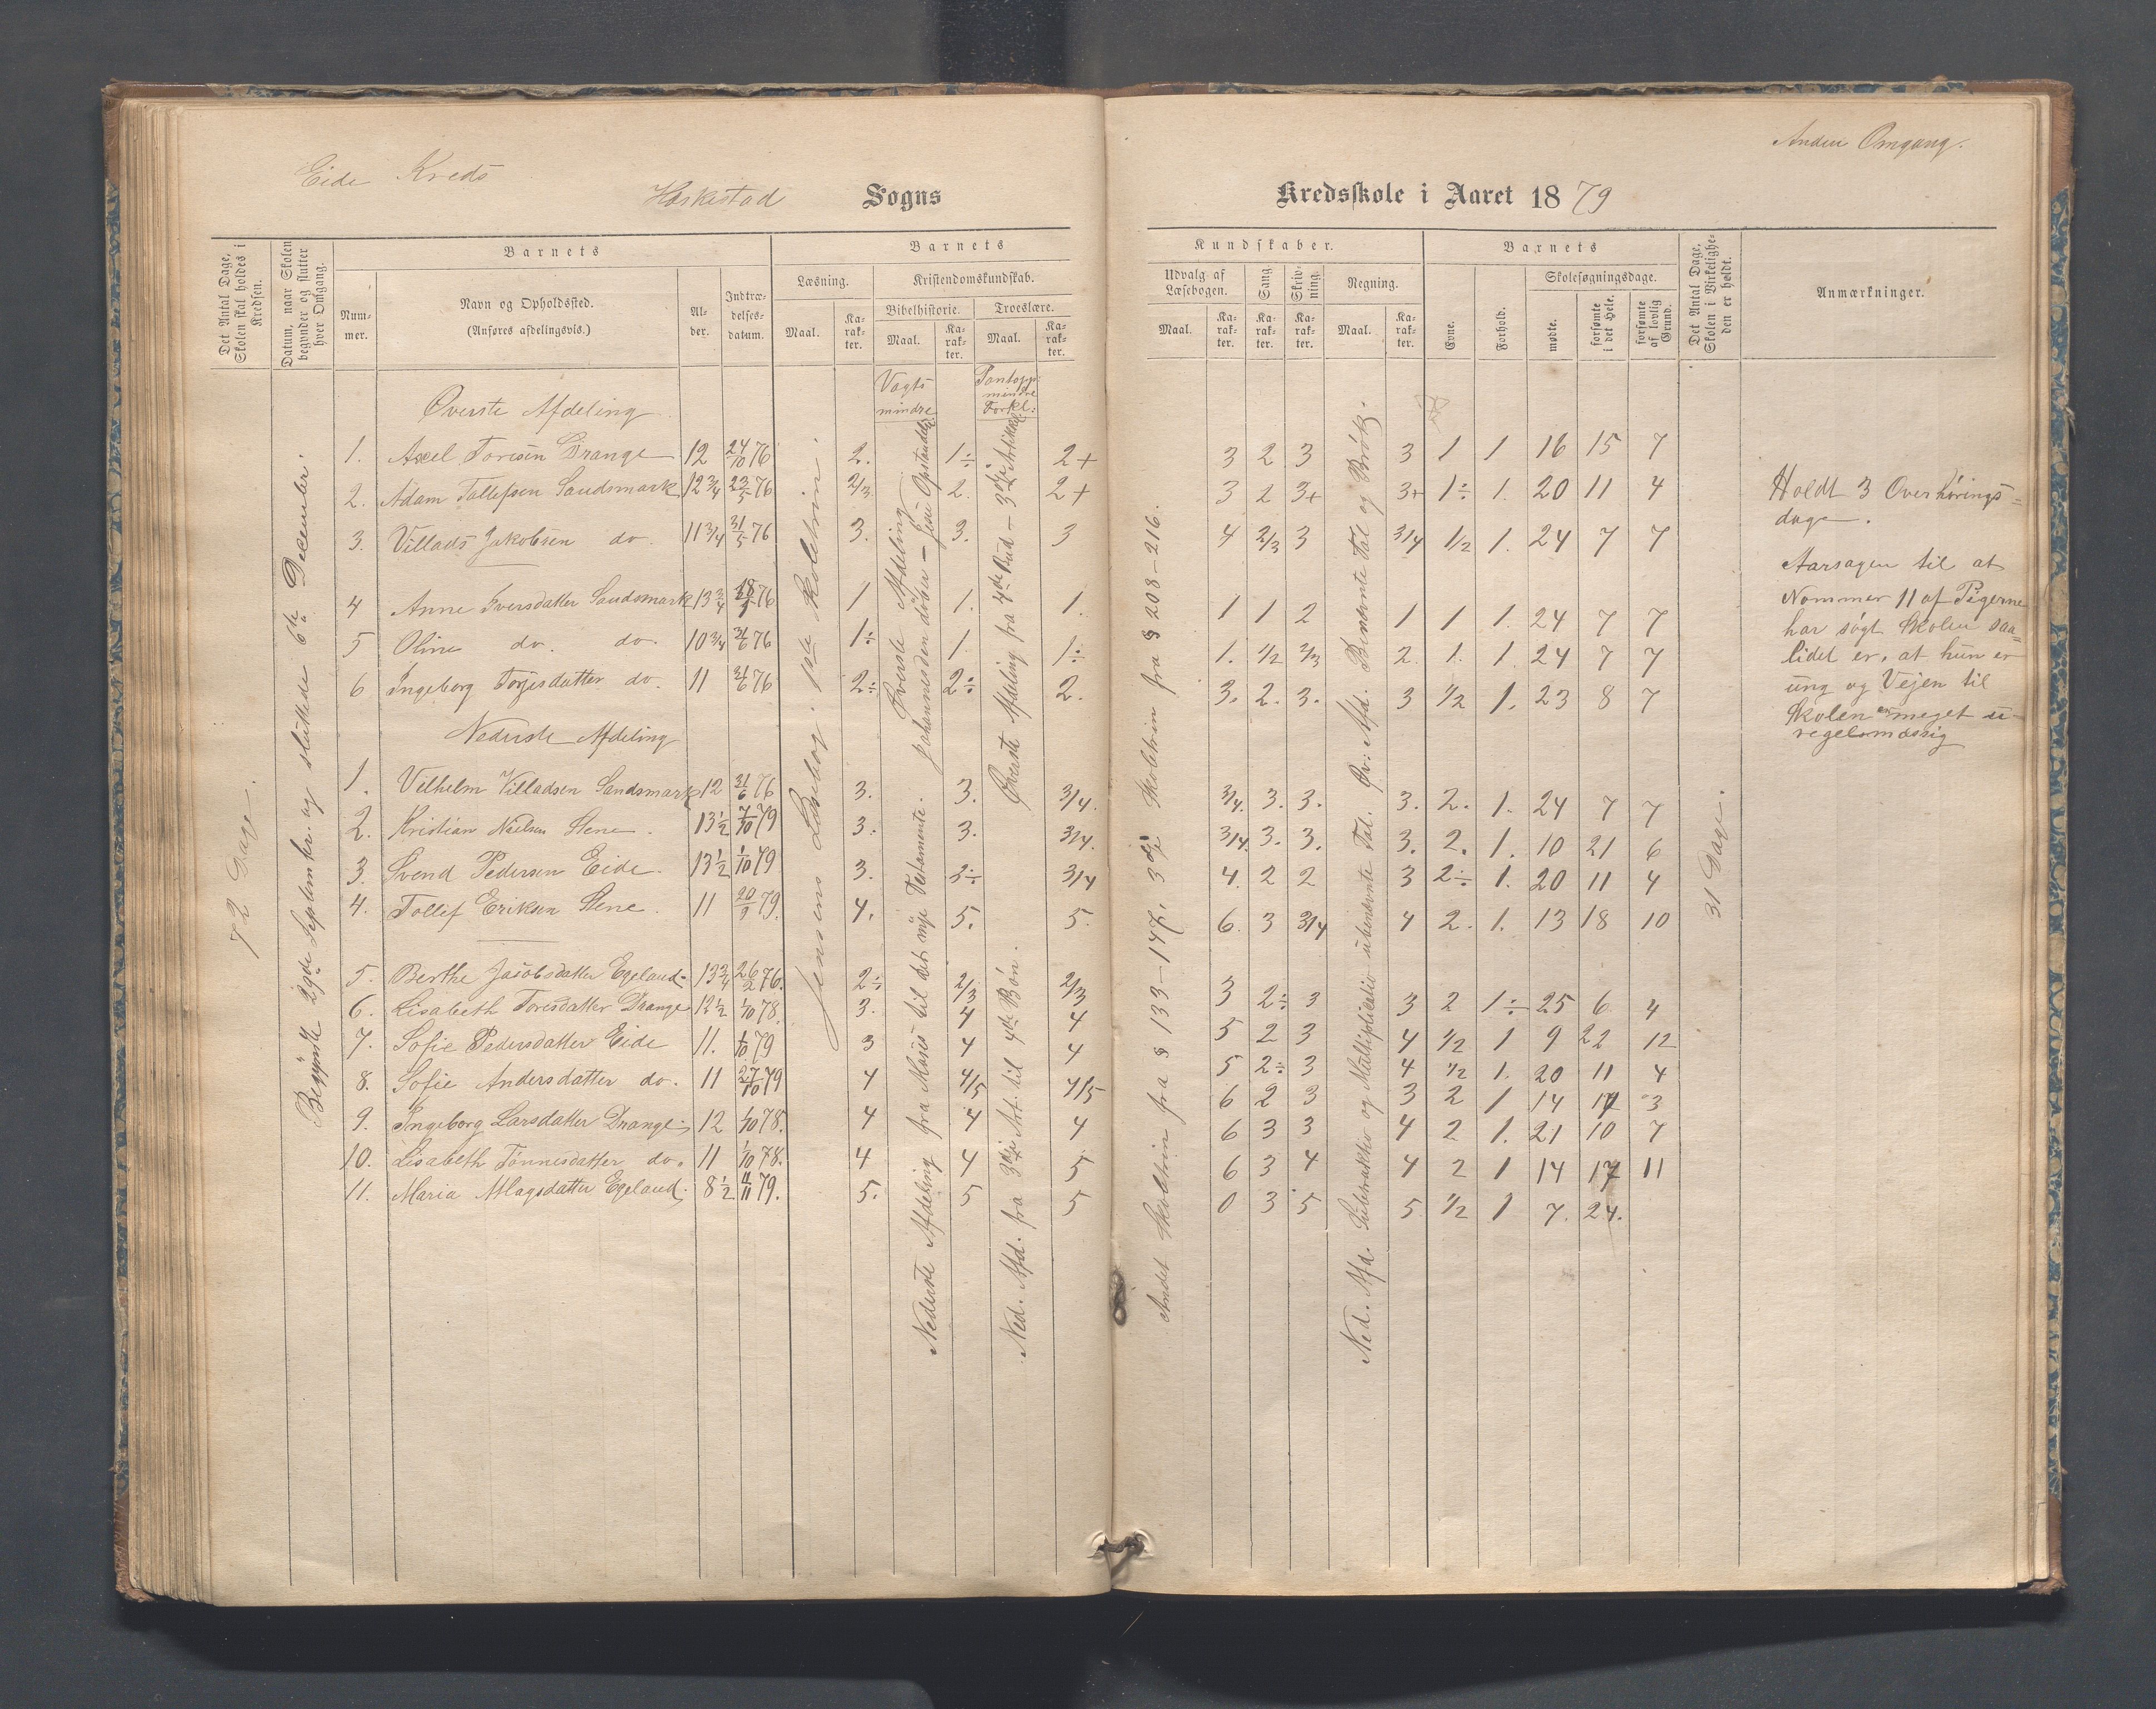 Eide Kreds
Heskestad Sogns
Anden Omgang.
Kredsskole i Aaret 1879
Det Antal Dage, Skolen skal holdes i Kredsen.
Datum, naar Skolen begynder og slutter hver Omgang.
Barnets
Nummer.
Navn og Opholdssted.
(Anføres afdelingsvis.)
Alder.
Indtrædelsesdatum.
Barnets
Læsning.
Maal.
Karakter.
Kristendomskundskab.
Bibelhistorie.
Maal.
Karakter.
Troeslære.
Maal.
Karakter.
Kundskaber.
Udvalg af Læsebogen.
Maal.
Karakter.
Sang
Karakter.
Skrivning.
Karakter.
Regning.
Maal.
Karakter.
Barnets
Evne.
Forhold.
Skolesøgningsdage.
mødte.
forsømte i det Hele.
forsømte af lovlig Grund.
Det Antal Dage, Skolen i Virkeligheden er holdt.
Anmærkninger.
72 Dage.
Begyndte 29de September og sluttede 6te December.
Jensens Læsebog. 1ste Skoletrin.
Vogts mindre.
Øverste Afdeling Johannes den døber – Jesu Opstandelse
Nederste Afdeling fra Moses til det nye Testamente.
Pontopp: mindre Forkl:
Øverste Afdeling fra 4de Bud – 3die Artikkel
Ned. Afd. fra 3die Art. til 4de Bøn.
Andet Skoletrin fra § 133–147, 3die Skoletrin fra § 208–216.
Ned. Afd. Subtraktio og Multiplicatio ubenævnte Tal. Øv: Afd. Benævnte Tal og Brøk.
31 Dage.
Øverste Afdeling
1. Axel Toresen Drange 12 24/10 76 2. 1÷ 2+ 3 2 3 3 1 1 16 15 7
2. Adam Tollefsen Sandsmark 12 3/4 23/5 76 2/3 2. 2+ 3 2 3+ 3+ 1÷ 1. 20 11 4
3. Villads Jakobsen do. 11 3/4 31/5 76 3. 3. 3 4 2/3 3 3/4 1/2 1. 24 7 7
4 Anne Iversdatter Sandsmark 13 3/4 76 1 1. 1. 1 1 2 1 1 1. 24 7 7
5 Oline do. do. 10 3/4 76 1÷ 1. 1÷ 1. 1/2 2/3 2. 1. 1. 24 7 7
6 Ingeborg Torjesdatter do. 11 76 2÷ 2÷ 2. 3. 2. 3. 3 1/2 1. 23 8 7
Nederste Afdeling
1. Vilhelm Villadsen Sandsmark 12 31/6 76 3. 3. 3/4. 3/4. 3. 3. 3. 2. 1. 24 7 7
2. Kristian Nielsen Stene. 13 1/2 7/10 79 3. 3. 3/4. 3/4. 3. 3. 3. 2. 1. 10 21 6
3. Svend Pedersen Eide. 13 1/2 1/10 79 3. 3÷ 3/4 4. 2 2 3 2÷ 1. 20 11 4
4. Tollef Eriksen Stene. 11 20/9 79. 4. 5. 5. 6. 3 3/4 4 2. 1. 13 18 10
5. Berthe Jacobsdatter Egeland. 13 3/4 26/2 76. 2÷ 2/3 2/3 3 2÷ 3 3 2 1÷ 25 6 4
6. Lisabeth Toresdatter Drange 12 1/2 1/10 78. 3. 4 4 5 2 3 4 1/2 1 9 22 12
7. Sofie Pedersdatter Eide 11. 1/10 79 3 4 4 5 2÷ 3 4 1/2 1. 20 11 4
8. Sofie Andersdatter do. 11 27/10 79 4 4/5 4/5 6 2 3 3 2 1 14 17 3
9. Ingeborg Larsdatter Drange. 12 1/10 78. 4 4 4 6 3 3 4 2 1. 21 10 7
10. Lisabeth Tönnesdatter do. 11 1/10 78. 4 4 5 6 3 4 4 2 1 14 17 11
11. Maria Aslagsdatter Egeland. 8 1/2 11/11 79. 5. 5 5 0 3 5 5 1/2 1 7. 24.
Holdt 3 Overhørings-
dage.
Aarsagen til at
Nommer 11 af Pigerne
har søgt Skolen saa-
lidet er, at hun er
ung og Vejen til
Skolen er meget u-
regelmæssig